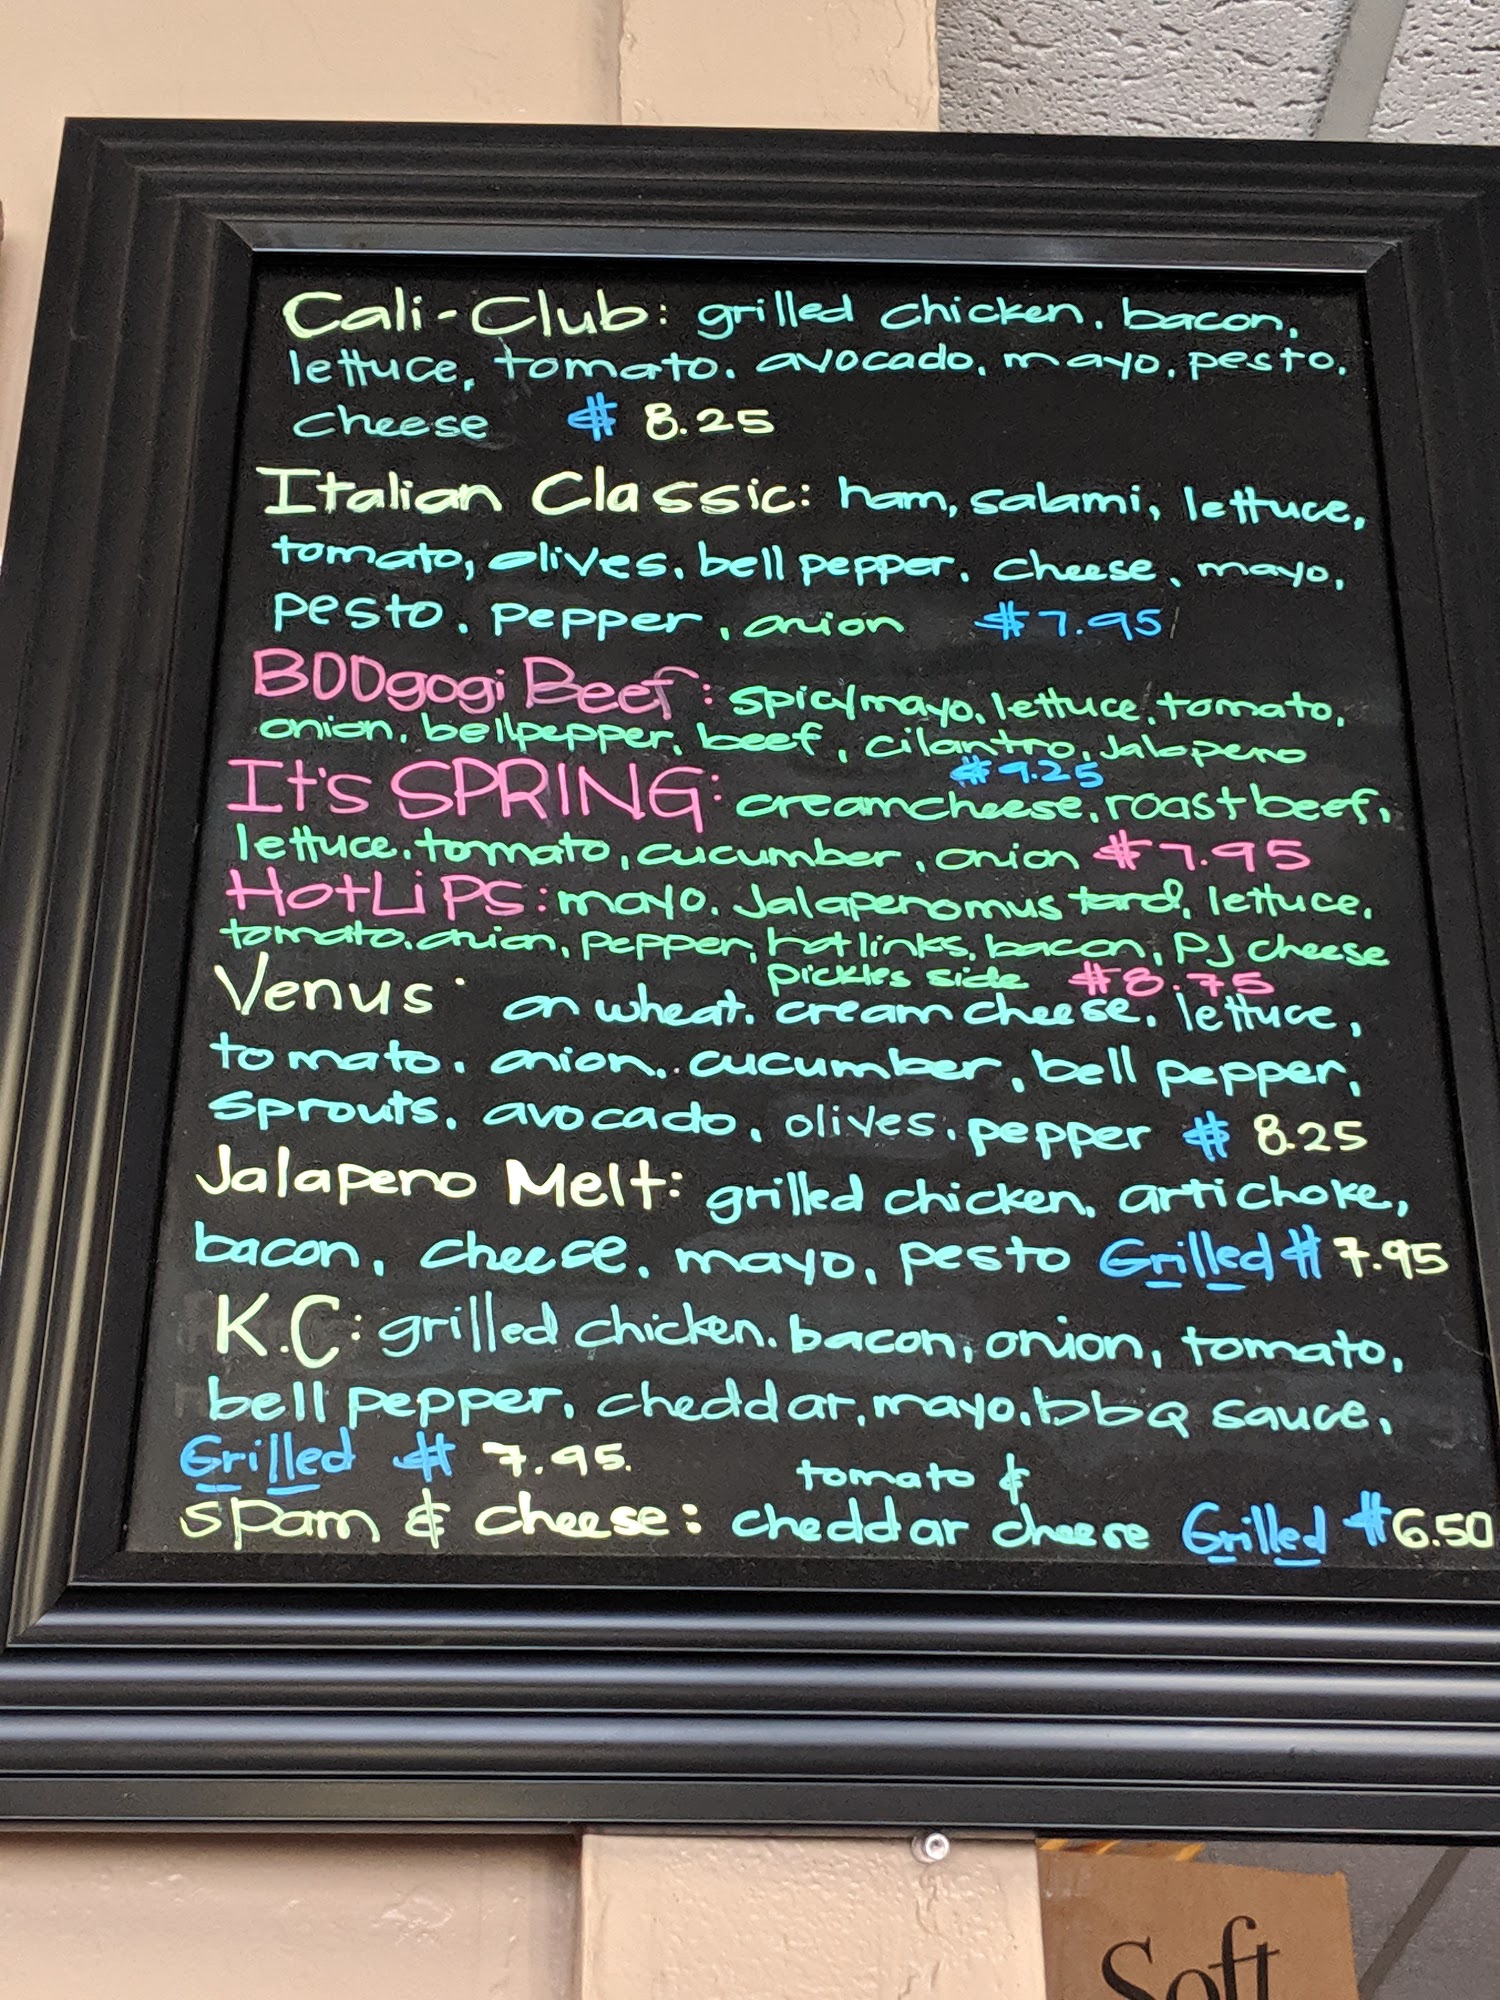 Cali-Club: grilled chicken, bacon,
lettuce, tomato, avocado, mayo, pesto,
cheese $ 8.25
Italian Classic: ham, salami, lettuce,
tomato, olives, bell pepper, cheese, mayo,
pesto, pepper, onion $7.95
BOOgogi Beef: spicy mayo, lettuce, tomato,
onion, bell pepper, beef, cilantro, Jalapeno
$9.25
It's SPRING: cream cheese, roast beef,
lettuce, tomato, cucumber, onion $7.95
HOTLiPS: mayo, Jalapeno mustard, lettuce,
tomato, onion, pepper, hot links, bacon, PJ cheese
pickles side $8.75
Venus: on wheat, cream cheese, lettuce,
tomato, onion, cucumber, bell pepper,
sprouts, avocado, olives, pepper $ 8.25
Jalapeno Melt: grilled chicken, artichoke,
bacon, cheese, mayo, pesto Grilled $ 7.95
K.C: grilled chicken, bacon, onion, tomato,
bell pepper, cheddar, mayo, bbq sauce,
Grilled $ 7.95.
tomato &
spam & cheese: cheddar cheese Grilled $6.50
Soft